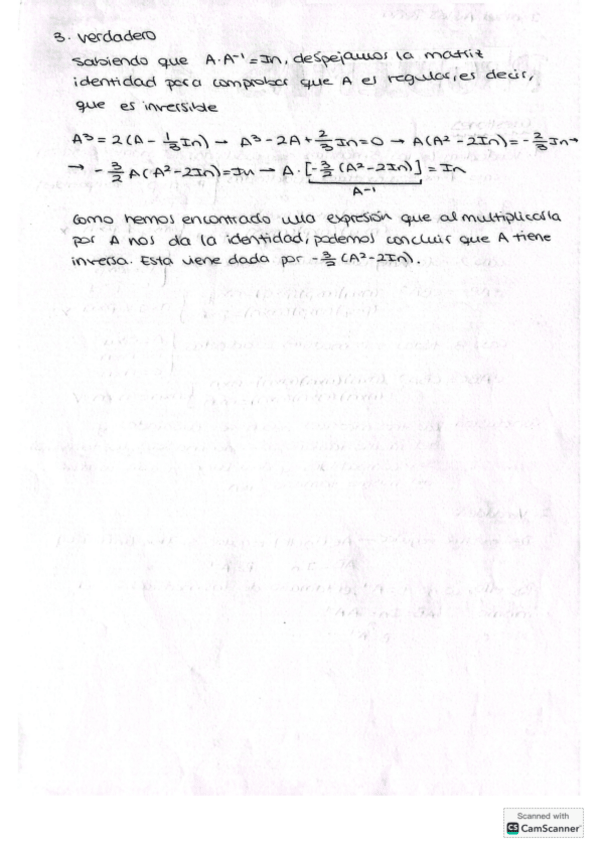 3. verdadero
Sabiendo que A·A⁻¹ = In, despejamos la matriz
identidad para comprobar que A es regular, es decir,
que es inversible
A³ = 2(A - 1/3 In) → A³ - 2A + 2/3 In = 0 → A(A² - 2In) = - 2/3 In →
→ - 3/2 A(A² - 2In) = In → A · [- 3/2 (A² - 2In)] = In
A⁻¹
Como hemos encontrado una expresión que al multiplicarla
por A nos da la identidad, podemos concluir que A tiene
inversa. Esta viene dada por - 3/2 (A² - 2In).
Scanned with
CS CamScanner